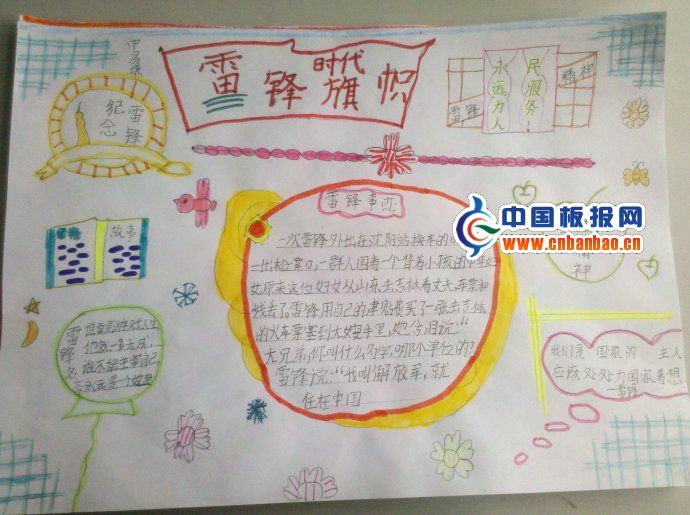 雷锋时代旗帜
纪念
雷锋
雷锋
永远为人
民服务！
精神
故事
雷锋事迹
一次雷锋外出在沈阳站换车的
一出检票口，一群人围着一个背着小孩的中年妇
女原来这位妇女从山东去吉林看丈夫车票和
钱丢了。雷锋用自己的津贴费买了一张去吉林
的火车票塞到大嫂手里，她含泪说：“
大兄弟，你叫什么名字，哪个单位的？
雷锋说：“我叫解放军，就
住在中国
中国板报网
www.cnbanbao.cn
神
雷锋名言
谁要是游戏人生
他就一事无成，
谁不能主宰自己，
永远是一个奴隶
我们是国家的主人
应该处处为国家着想
—雷锋